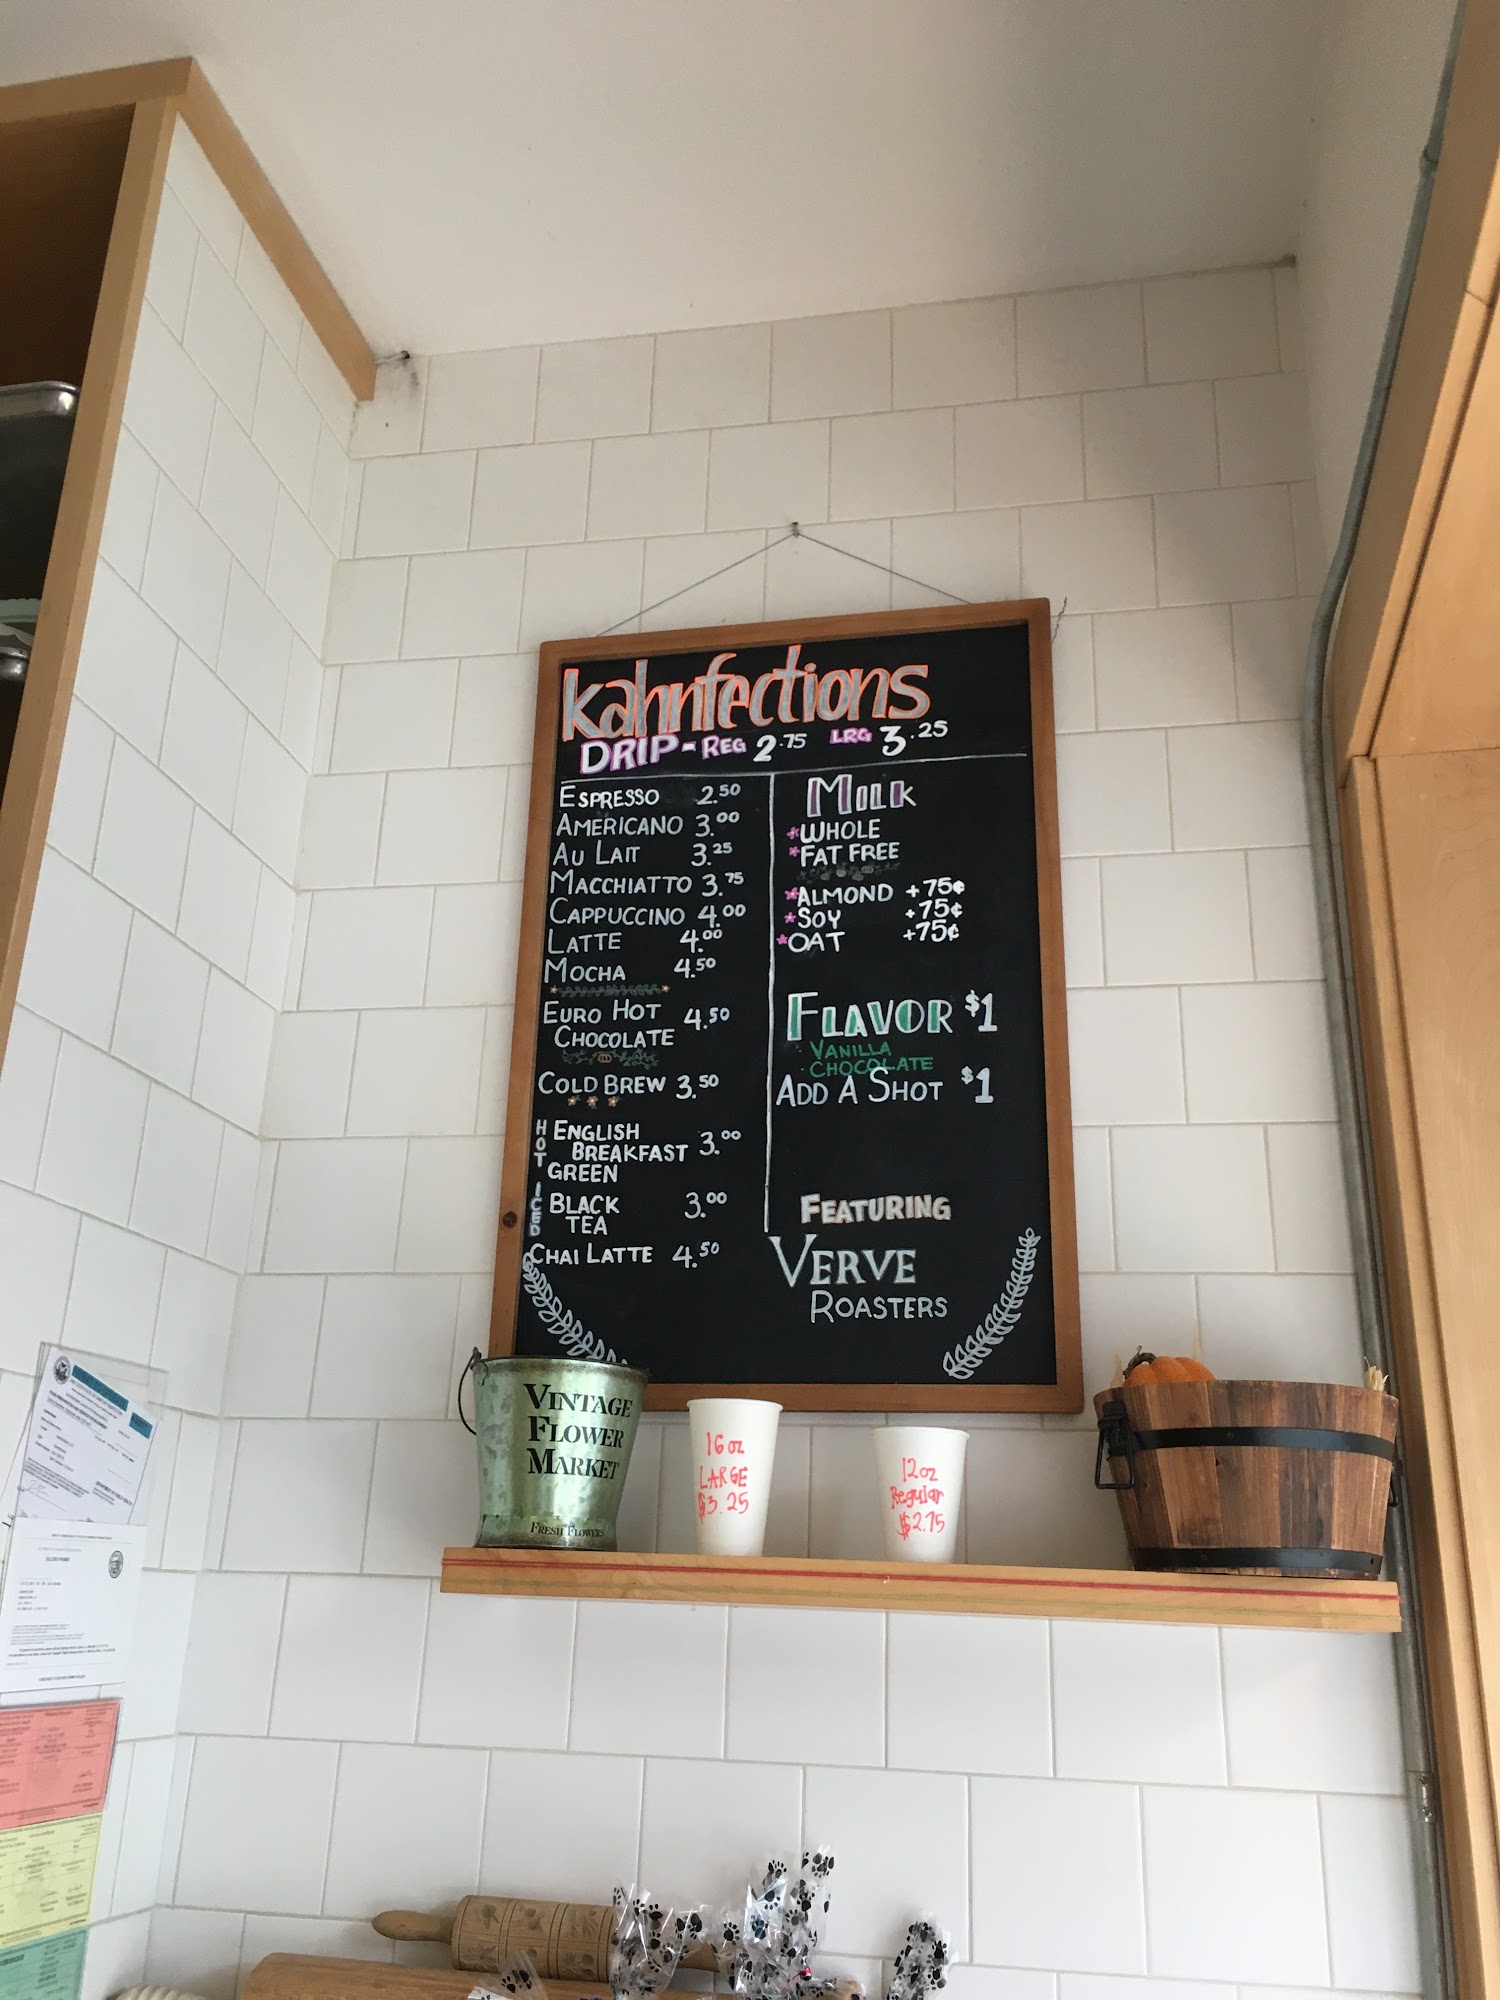 kahnfections
DRIP - REG 2.75 LRG 3.25
ESPRESSO 2.50
AMERICANO 3.00
AU LAIT 3.25
MACCHIATTO 3.75
CAPPUCCINO 4.00
LATTE 4.00
MOCHA 4.50
EURO HOT
CHOCOLATE 4.50
COLD BREW 3.50
HOT
ENGLISH
BREAKFAST 3.00
GREEN
ICED
BLACK 3.00
TEA
CHAI LATTE 4.50
MILK
*WHOLE
*FAT FREE
*ALMOND +75¢
*SOY +75¢
*OAT +75¢
FLAVOR $1
· VANILLA
· CHOCOLATE
ADD A SHOT $1
FEATURING
VERVE
ROASTERS
VINTAGE
FLOWER
MARKET
FRESH FLOWERS
16oz
LARGE
$3.25
12oz
Regular
$2.75